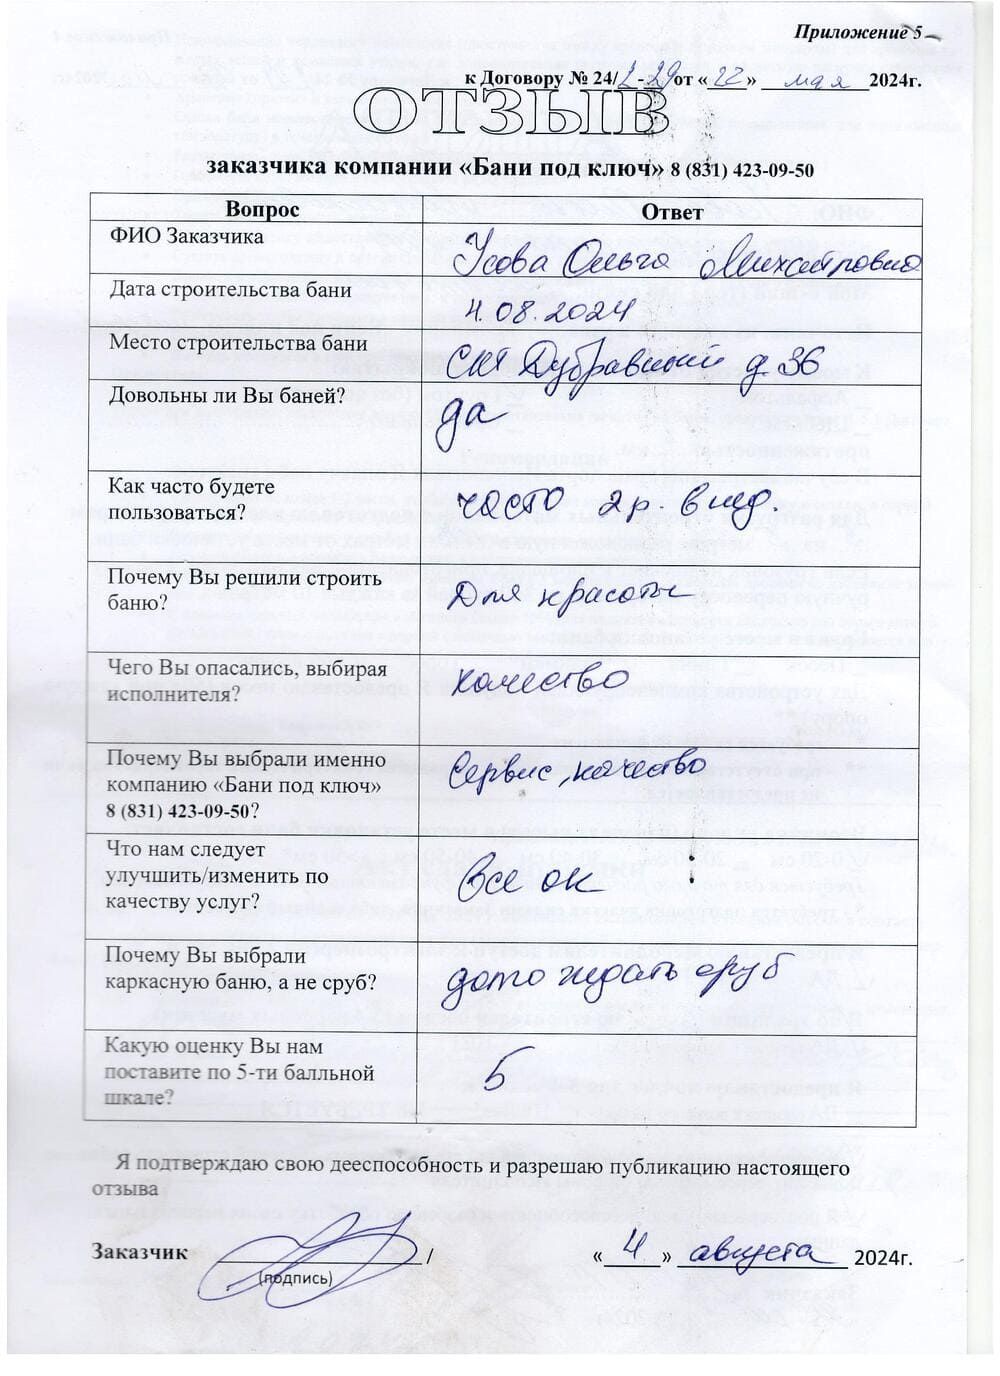 Приложение 5
к Договору № 24/2-29 от «22» мая 2024г.
ОТЗЫВ
заказчика компании «Бани под ключ» 8 (831) 423-09-50
Вопрос Ответ
ФИО Заказчика Усова Ольга
Дата строительства бани 4.08.2024
Место строительства бани СНТ Дубравный д. 36
Довольны ли Вы баней? да
Как часто будете часто 2 р. в нед.
пользоваться?
Почему Вы решили строить Для красоты
баню?
Чего Вы опасались, выбирая качество
исполнителя?
Почему Вы выбрали именно Сервис, качество
компанию «Бани под ключ»
8 (831) 423-09-50?
Что нам следует
улучшить/изменить по все ок
качеству услуг?
Почему Вы выбрали
каркасную баню, а не сруб? ждать сруб
Какую оценку Вы нам
поставите по 5-ти балльной 5
шкале?
Я подтверждаю свою дееспособность и разрешаю публикацию настоящего
отзыва
Заказчик / «4» августа 2024г.
(подпись)